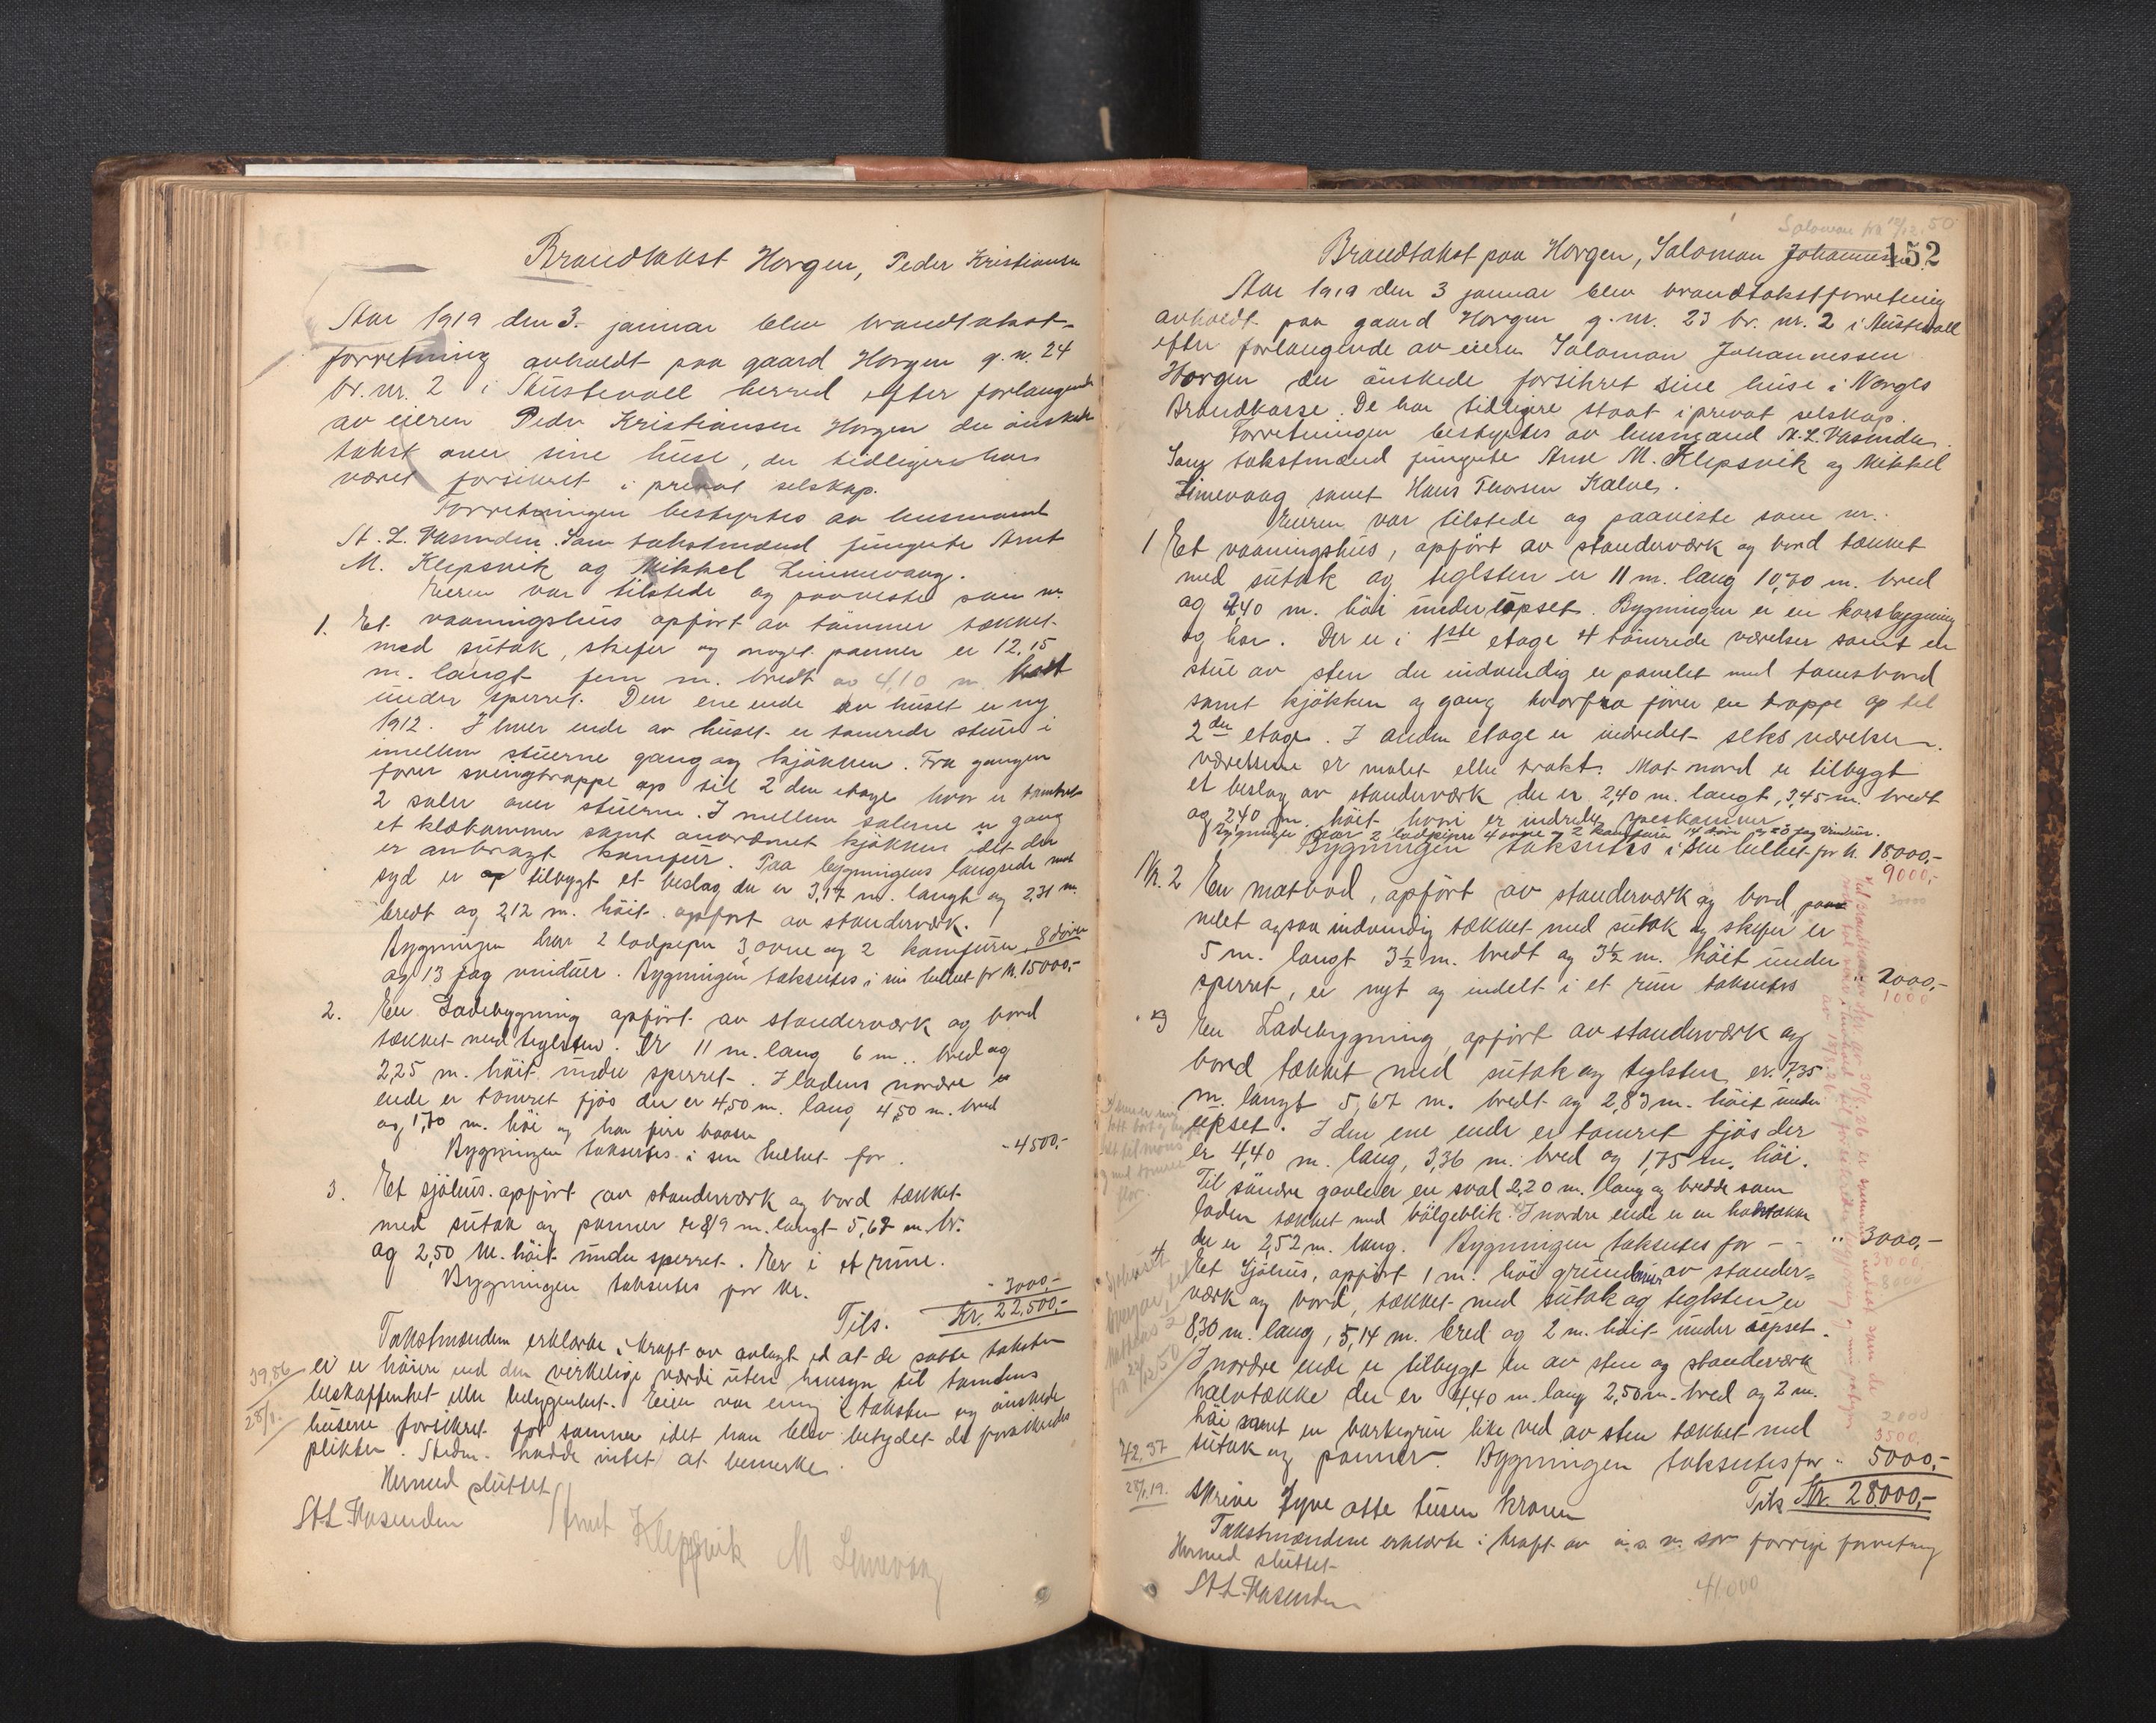 Brandtakst Horgen, Peder Kristiansen
Aar 1919 den 3. januar blev brandtakst-
forretning avholdt paa gaard Horgen g. n. 24
br. nr. 2 i Austevoll herred efter forlangende
av eieren Peder Kristiansen Horgen der önskede
takst over sine huse, der tidligere har
været forsikret i privat selskap.
Forretningen bestyrtes av lensmand
St. L. Vasenden. Som takstmænd fungerte Arnt
M. Klepsvik og Mikkel Limmevaag.
Eieren var tilstede og paaviste som nr.
1. Et vaaningshus opført av tömmer tækket
med sutak, skifer og noget panner er 12,15
m. langt fem m. bredt og 4,10 m. höit
under sperret. Den ene ende av huset er ny
1912. I hver ende av huset er tømrede stuer i
imellem stuerne gang og kjökken. Fra gangen
fører svingtrappe op til 2den etage hvor er tømret
2 saler over stuerne. I mellem salerne er gang
et klækammer samt anordnet kjökken idet der
er anbragt komfur. Paa bygningens langside mot
syd er op tilbygt et beslag der er 3,17 m. langt og 2,31 m.
bredt og 2,12 m. höit. opført av standerværk.
Bygningen har 2 lodpiper 3 ovne og 2 komfurer 8 döre
og 13 fag vinduer. Bygningen taksertes i sin helhet for kr. 15000,-
2. En Ladebygning opført av standerværk og bord
tækket med teglsten. Er 11 m. lang 6 m. bred og
2,25 m. höit under sperret. I ladens nordre
ende er tømret fjös der er 4,50 m. lang 4,50 m. bred
og 1,70 m. höi og har fire baaser
Bygningen taksertes i sin helhet for. - 4500,-
3. Et sjöhus opført av standerværk og bord tækket
med sutak og panner er 8,19 m. langt 5,67 m. br.
og 2,50 m. höit under sperret. Er i et rum.
Bygningen taksertes for kr. - 3000,-
Tils. Kr. 22,500,-
Takstmændene erklærte i kraft av avlagt ed at de satte taksten
ei er höiere end den virkelige værdi uten hensyn til tomtens
beskaffenhet eller beliggenhet. Eieren var enig i taksten og önskede
husene forsikret for samme idet han blev betydet de forsikredes
plikter. Skedm. hadde intet at bemerke.
39,86
28/1.
Hermed sluttet
St L Vasenden Arnt Klepsvik M Limevaag
Salomon frå 12/12.50
Brandtakst paa Horgen, Salomon Johannessen
152
Aar 1919 den 3 januar blev brandtakstforretning
avholdt paa gaard Horgen g. nr. 23 br. nr. 2 i Austevoll
efter forlangende av eieren Salomon Johannessen
Horgen der önskede forsikret sine huse i Norges
Brandkasse. De har tidligere staat i privat selskap.
Forretningen bestyrtes av lensmand St. L. Vasenden.
Som takstmænd fungerte Arne M. Klepsvik og Mikkel
Limevaag samt Hans Thorsen Kalve.
Eieren var tilstede og paaviste som nr.
1 Et vaaningshus, opført av standerværk og bord tækket
med sutak og teglsten er 11 m. lang 10,70 m. bred
og 2,40 m. höi under öpset. Bygningen er en korsbygning
og har. Der er i 1ste etage 4 tömrede værelser samt en
stue av sten der indvendig er panelet med tomsbord
samt kjökken og gang hvorfra förer en trappe op til
2den etage. I anden etage er indredet seks værelser.
værelserne er malet eller trakt. Mot nord er tilbygt
et beslag av standerværk der er 2,40 m. langt, 3,45 m. bredt
og 2,40 m. höit hvori er indredet speskammer.
Bygningen har 2 lodpiper 4 ovne og 2 komfurer 14 döre og 20 fag vinduer.
Bygningen taksertes i sin helhet for kr. 18000,-
9000,-
Nr. 2 En matbod, opført av standerværk og bord paa
nelet ogsaa indvendig tækket med sutak og skifer er
5 m. langt 3½ m. bredt og 3½ m. höit under
sperret, er nyt og indelt i et rum taksertes " 2000,-
1000
3 En Ladebygning, opført av standerværk og
bord tækket med sutak og teglsten er 7,35
m. langt 5,67 m. bredt og 2,83 m. höit under
öpset. I den ene ende er tömret fjös der
er 4,40 m. lang, 3,36 m. bred og 1,75 m. höi.
Til söndre gavl er en sval 2,20 m. lang og bredde som
laden tækket med bölgeblik. I nordre ende er en halvtække
der er 2,52 m. lang. Bygningen taksertes for - - " 3000,-
3000,-
4 Et Sjöhus, opført 1 m. höi grundmur av stander=
værk og bord, tækket med sutak og teglsten er
8,30 m. lang, 5,14 m. bred og 2 m. höit under öepset.
I nordre ende er tilbygt en av sten og standerværk
halvtække der er 4,40 m. lang 2,50 m. bred og 2 m.
höi samt en barkegrue like ved av sten tækket med
sutak og panner. Bygningen taksertes for " 5000,-
3500,
42,37
28/1.19.
Skrive tyve otte tusen kroner Tils Kr. 28000,-
Takstmændene erklærte i kraft av o. s. v. som forrige forretning
Hermed sluttet
St L. Vasenden
41000